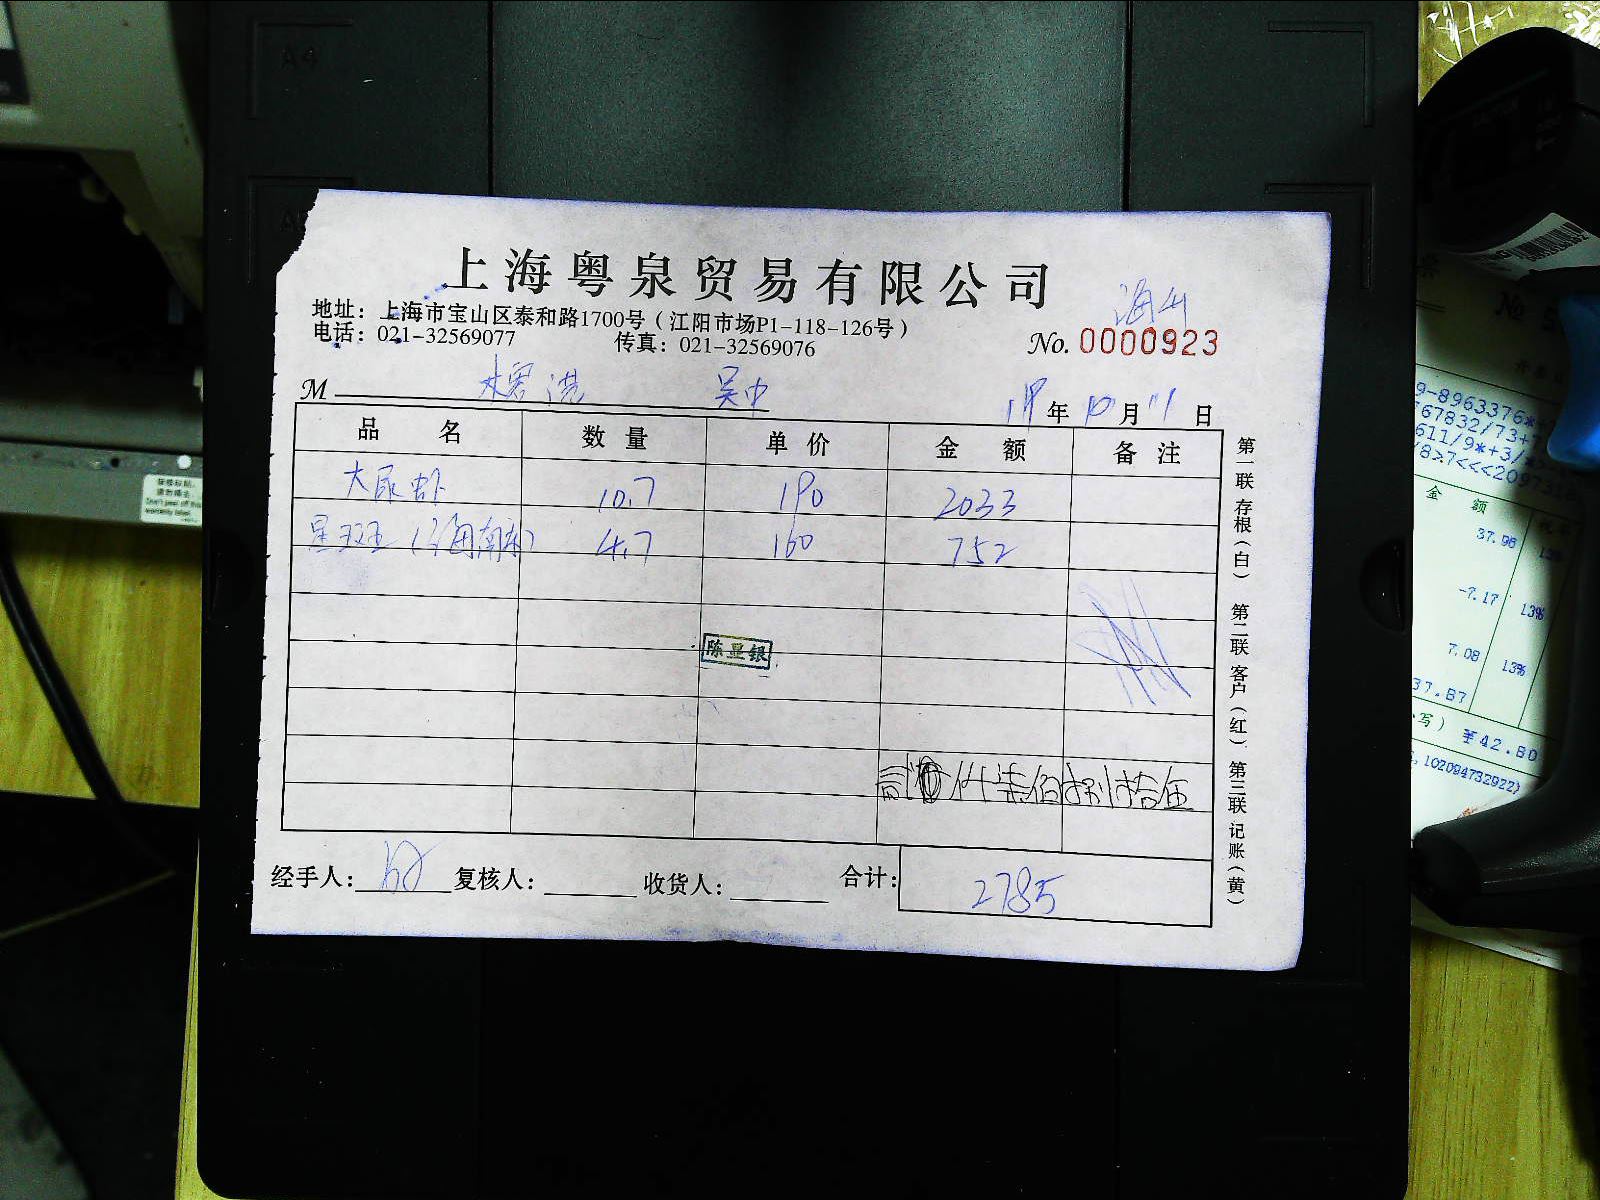 上海粤泉贸易有限公司
地址：上海市宝山区泰和路1700号（江阳市场P1-118-126号）
电话：021-32569077 传真：021-32569076
No. 0000923
M 吴中
19年10月11日
品名 数量 单价 金额 备注
大尿虾 10.7 190 2033
星斑 4.7 160 752
陈显银
贰仟柒佰捌拾伍
经手人： 复核人： 收货人： 合计： 2785
第一联 存根（白） 第二联 客户（红） 第三联 记账（黄）
A4
9-8963376*+
67832/73+7
611/9*+3/
/8>7<<<20973
金 额
37.96 13%
-7.17 13%
7.08 13%
37.87
写） ¥42.80
102094732922)